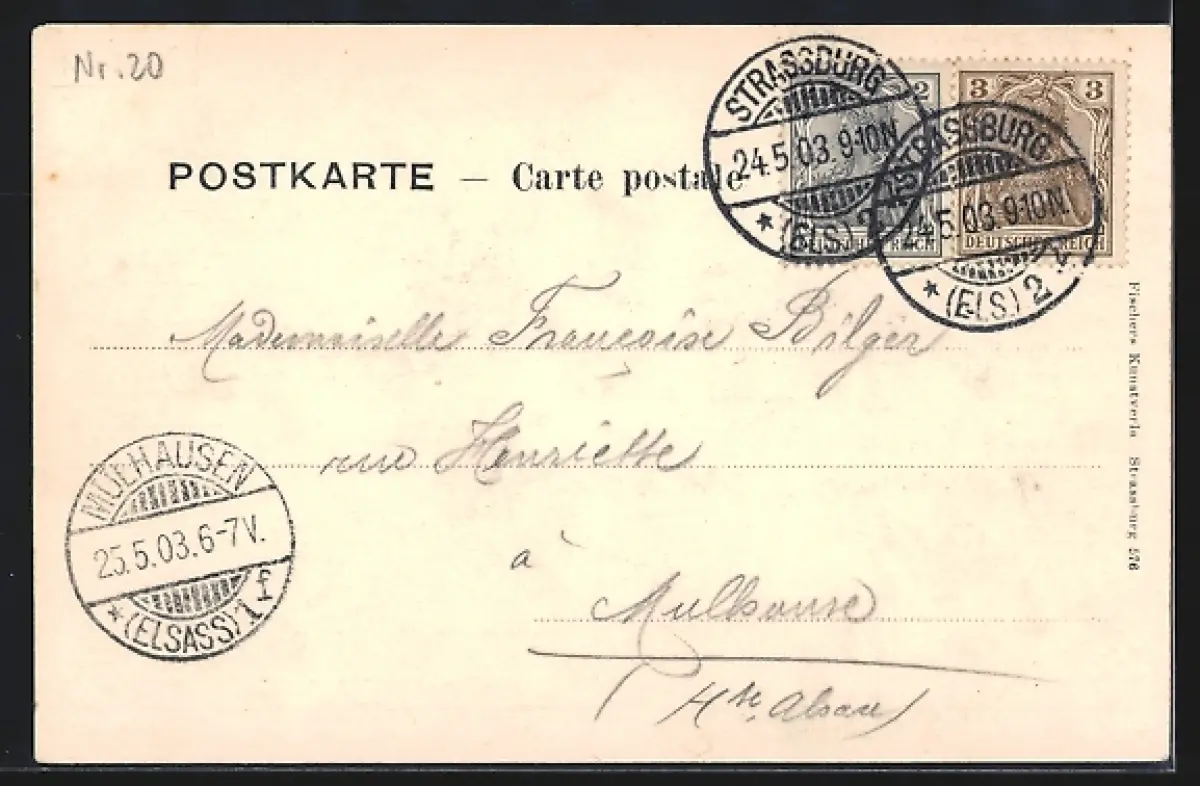 Nr. 20
STRASSBURG
24.5.03.9-10N.
* (ELS.) 2
2
DEUTSCHES REICH
3 3
DEUTSCHES REICH
STRASSBURG
24.5.03.9-10N.
* (ELS.) 2
POSTKARTE — Carte postale
Mademoiselle Françoise Bilger
rue Henriette
à
Mulhouse
Hte. Alsace
MÜLHAUSEN
25.5.03.6-7V.
* (ELSASS) 1 f
Fischers Kunstverla Strassburg 576